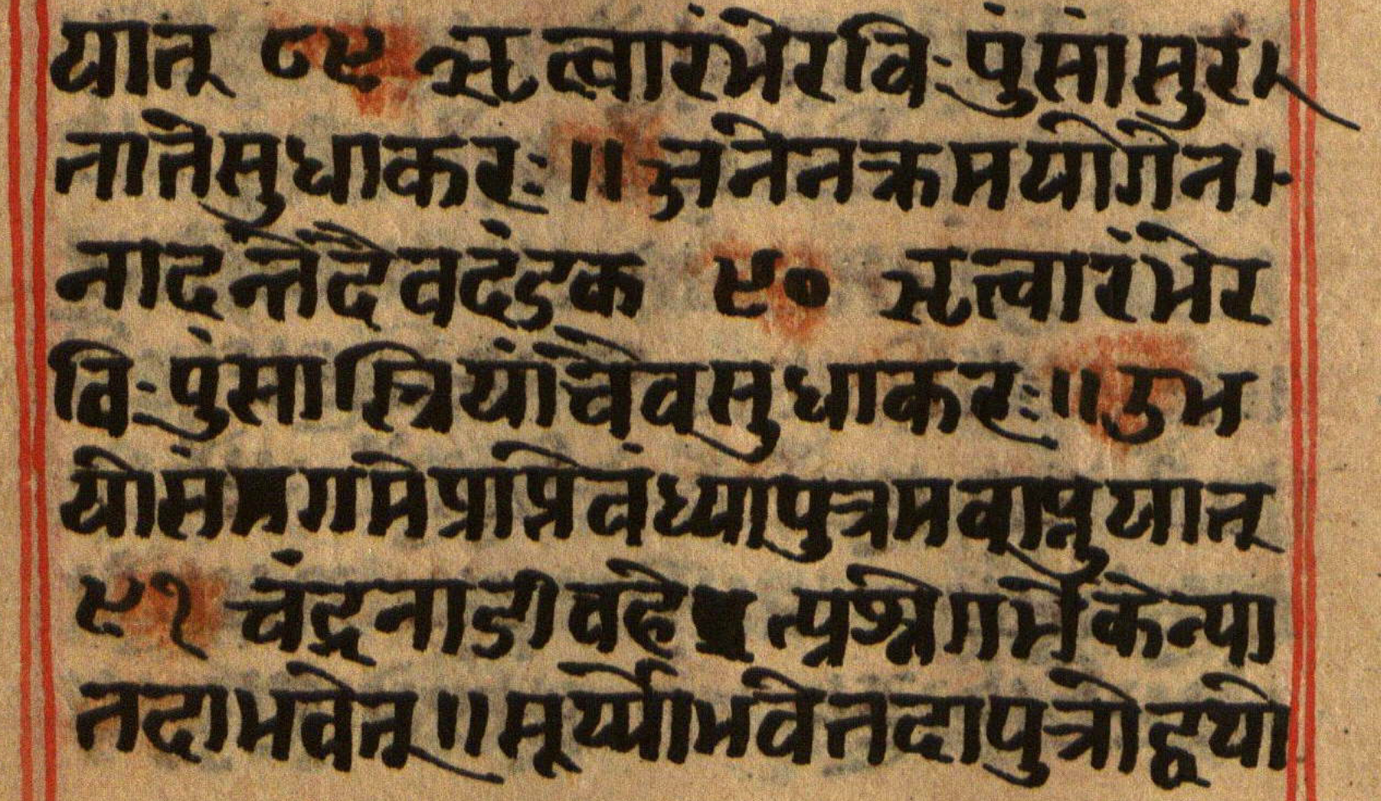 यात् ८९ ऋत्वारंभेरविःपुंसांसुर।
तांतेसुधाकरः॥ अनेनक्रमयोगेन।
नादत्तेदैवदंडक ९० ऋत्वारंभेर
विःपुंसास्त्रियांचैवसुधाकरः॥उभ
योसंमगमेप्राप्तेवंध्यापुत्रमवाप्नुयात्
९१ चंद्रनाडीवहेत्प्रश्नेगर्भेकेन्या
तदाभवेत्॥सूर्य्योभवेत्तदापुत्रोद्वयो